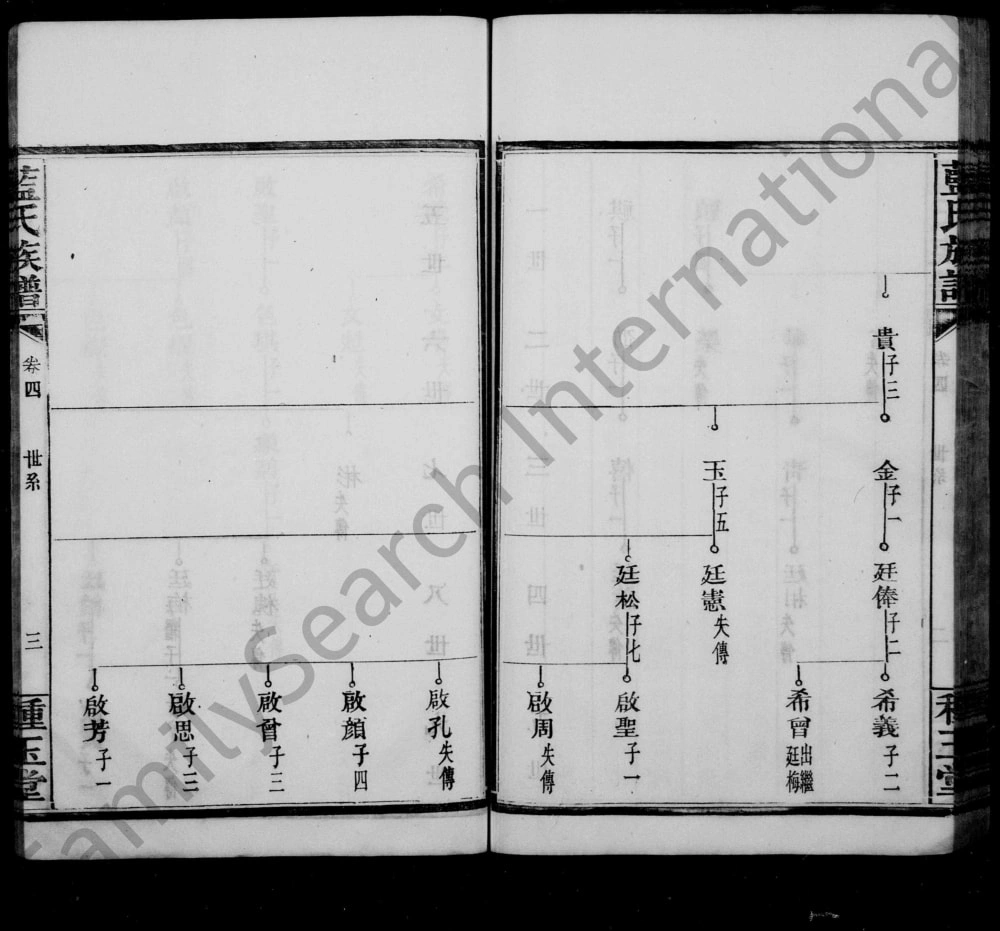 藍氏族譜
貴 子三
金 子一
廷俸 子二
希義 子二
希曾 出繼廷梅
玉 子五
廷憲 失傳
廷松 子七
啟聖 子一
啟周 失傳
啟孔 失傳
啟顏 子四
啟曾 子三
啟思 子三
啟芳 子一
藍氏族譜
卷四
世系
三
種玉堂
FamilySearch International